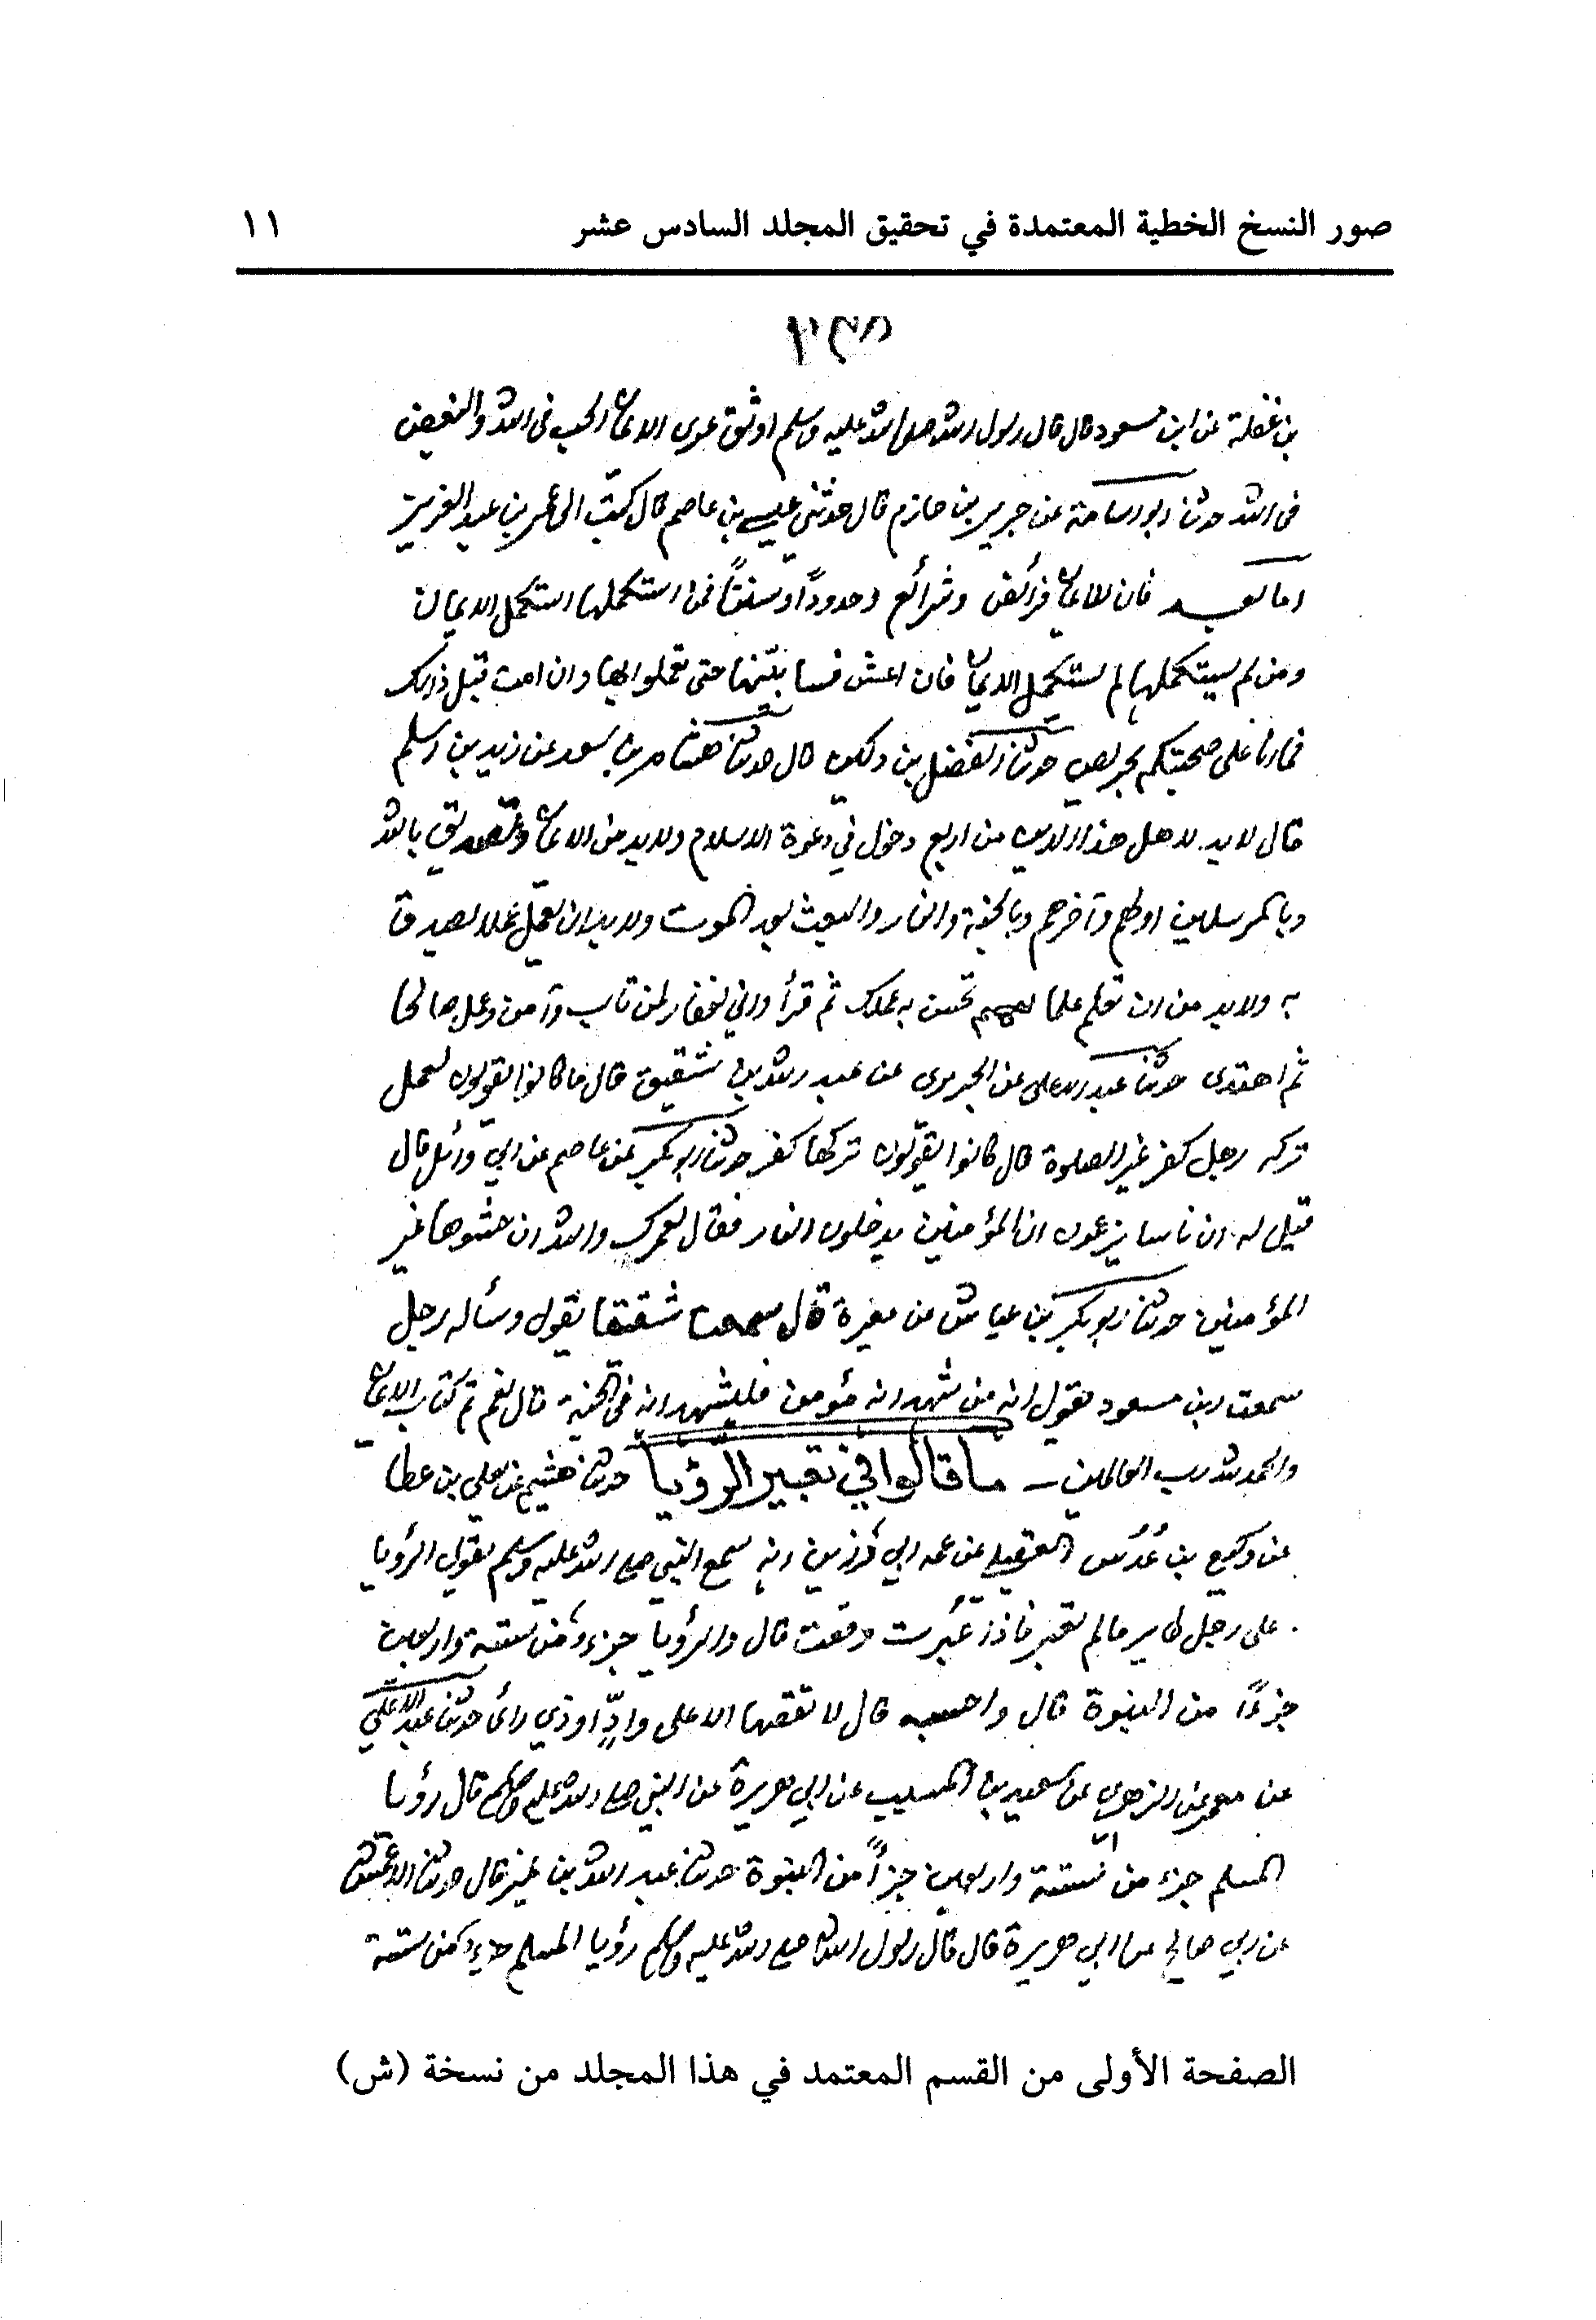 صور النسخ الخطية المعتمدة في تحقيق المجلد السادس عشر ١١
بن غفلة عن ابن مسعود قال قال رسول الله صلى الله عليه وسلم اوثق عرى الايمان الحب في الله والبغض
في الله حدثنا ابو اسامة عن جرير بن حازم قال حدثني عيسى بن عاصم قال كتب الى عمر بن عبد العزيز
اما بعد فان للايمان فرائض وشرائع وحدودًا وسننًا فمن استكملها استكمل الايمان
ومن لم يستكملها لم يستكمل الايمان فان اعش فسابيّنها حتى تعملوا بها وان امت قبل ذلك
فما انا على صحبتكم بحريص حدثنا الفضل بن دكين قال حدثنا هشام بن سعد عن زيد بن اسلم
قال لابد لاهل هذا الدين من اربع دخول في دعوة الاسلام ولابد من الايمان وتصديق بالله
وبالمرسلين اولهم وآخرهم وبالجنة والنار والبعث بعد الموت ولابد ان تعمل عملا تصدق
به ولابد من ان تعلم علما تحسن به عملك ثم قرأ واني لغفار لمن تاب وآمن وعمل صالحا
ثم اهتدى حدثنا عبد الاعلى عن الجريري عن عبد الله بن شقيق قال ما كانوا يقولون لعمل
تركه رجل كفر غير الصلوة قال كانوا يقولون تركها كفر حدثنا ابو بكر عن عاصم عن ابي وائل قال
قيل له ان ناسا يزعمون ان المؤمنين يدخلون النار فقال لعمرك والله ان حشوها غير
المؤمنين حدثنا ابو بكر بن عياش عن مغيرة قال سمعت شقيقا يقول وسأله رجل
سمعت ابن مسعود يقول انه من شهد انه مؤمن فليشهد انه في الجنة قال نعم تم كتاب الايمان
والحمد لله رب العالمين – ما قالوا في تعبير الرؤيا حدثنا هشيم عن يعلى بن عطا
عن وكيع بن عُدُس العقيلي عن عمه ابي رزين انه سمع النبي صلى الله عليه وسلم يقول الرؤيا
على رجل طاير مالم تعبر فاذا عُبِرت وقعت قال والرؤيا جزء من ستة واربعين
جزءًا من النبوة قال واحسبه قال لا تقصها الا على وادٍّ او ذي رأى حدثنا عبد الاعلى
عن معمر عن الزهري عن سعيد بن المسيب عن ابي هريرة عن النبي صلى الله عليه وسلم قال رؤيا
المسلم جزء من ستة واربعين جزأً من النبوة حدثنا عبد الله بن نمير قال حدثنا الاعمش
عن ابي صالح عن ابي هريرة قال قال رسول الله صلى الله عليه وسلم رؤيا المسلم جزء من ستة
الصفحة الأولى من القسم المعتمد في هذا المجلد من نسخة (ش)